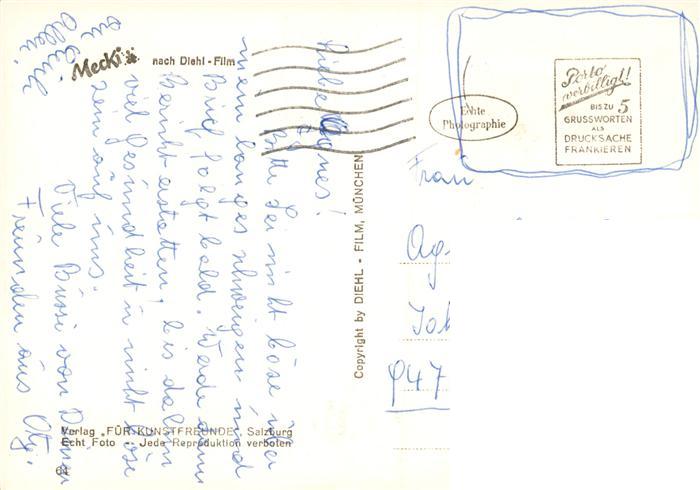 Mecki nach Diehl-Film
Liebe Agnes!
Bitte sei nicht böse über
mein langes schweigen und
Brief folgt bald. Werde dann
Bericht erstatten, bis dahin
viel gesundheit u nicht böse
sein auf uns.
Viele Bussi von Deinen
Freunden aus
Copyright by DIEHL - FILM, MÜNCHEN
Verlag „FÜR KUNSTFREUNDE" Salzburg
Echt Foto -- Jede Reproduktion verboten
64
Echte
Photographie
Porto
verbilligt!
BIS ZU 5
GRUSSWORTEN
ALS
DRUCKSACHE
FRANKIEREN
Frau
Ag
947